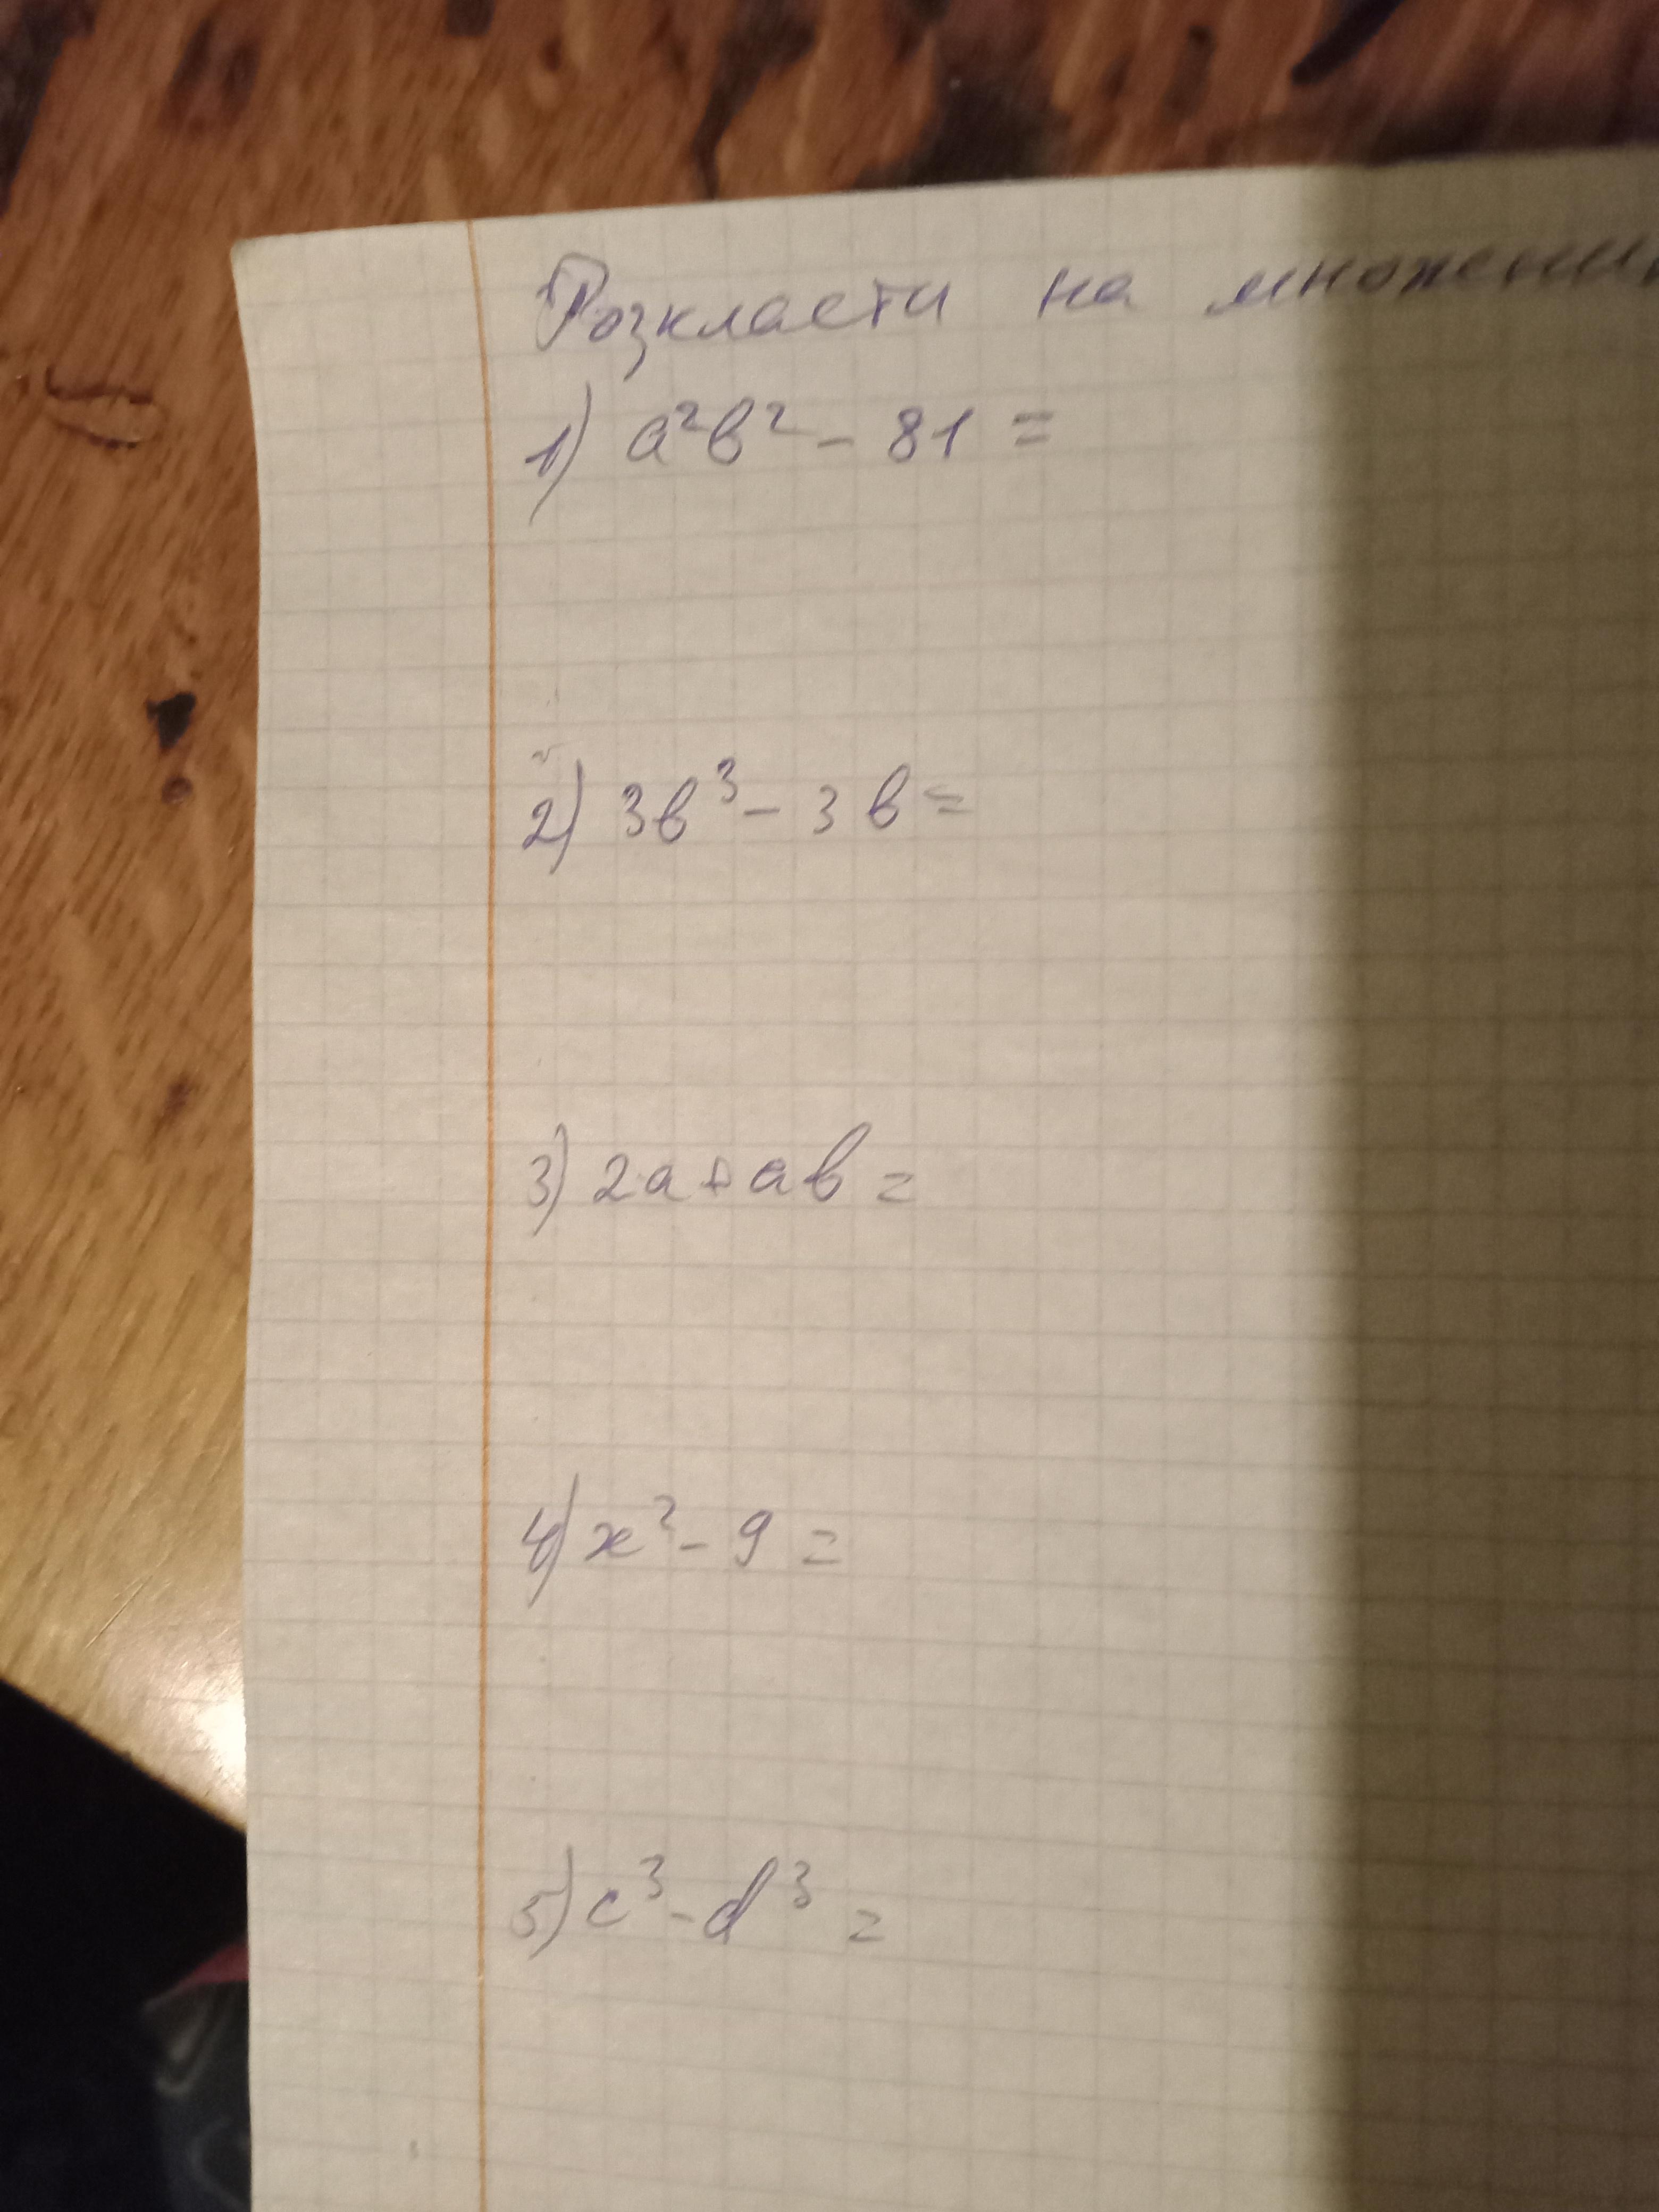 Розкласти на множени
1) a²b² - 81 =
2) 3b³ - 3b =
3) 2a + ab =
4) x² - 9 =
5) c³ - d³ =